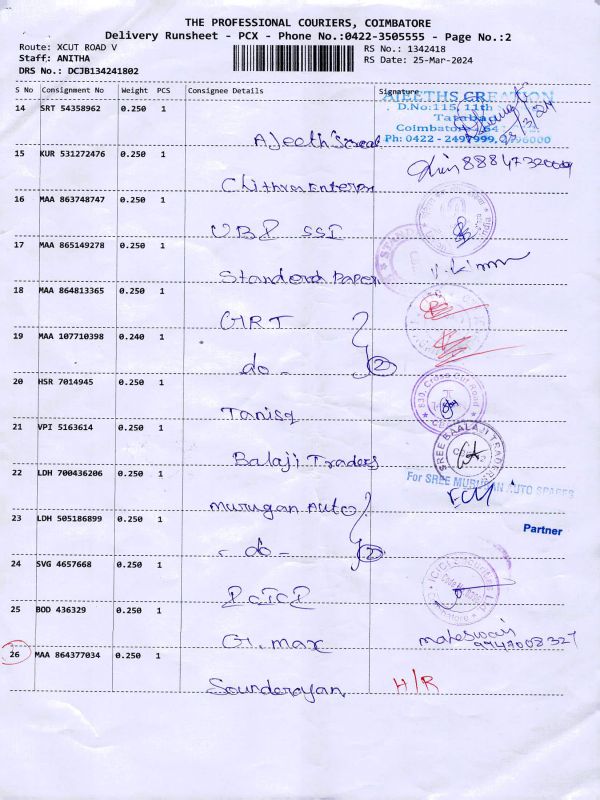 THE PROFESSIONAL COURIERS, COIMBATORE
Delivery Runsheet - PCX - Phone No.:0422-3505555 - Page No.:2
Route: XCUT ROAD V
RS No.: 1342418
Staff: ANITHA
RS Date: 25-Mar-2024
DRS No.: DCJB134241802
S No Consignment No Weight PCS Consignee Details Signature
AJEETHS CREATION
D.No:115, 11th
Tatabad
Coimbatore
Ph: 0422 -
14 SRT 54358962 0.250 1
23/3/24
Ajeeth
15 KUR 531272476 0.250 1
Chithra
16 MAA 863748747 0.250 1
UBI SSI
17 MAA 865149278 0.250 1
Standerd Paper
18 MAA 864813365 0.250 1
GRT
19 MAA 107710398 0.240 1
do - 2
20 HSR 7014945 0.250 1
Tanisq
21 VPI 5163614 0.250 1
Balaji Traders
SREE BAALAJI TRADERS
22 LDH 700436206 0.250 1
For SREE MURUGAN AUTO SPARES
Murugan Auto
23 LDH 505186899 0.250 1
Partner
- do - 2
24 SVG 4657668 0.250 1
ICICI
25 BOD 436329 0.250 1
G.max
9747008327
26 MAA 864377034 0.250 1
Sounderajan H/R